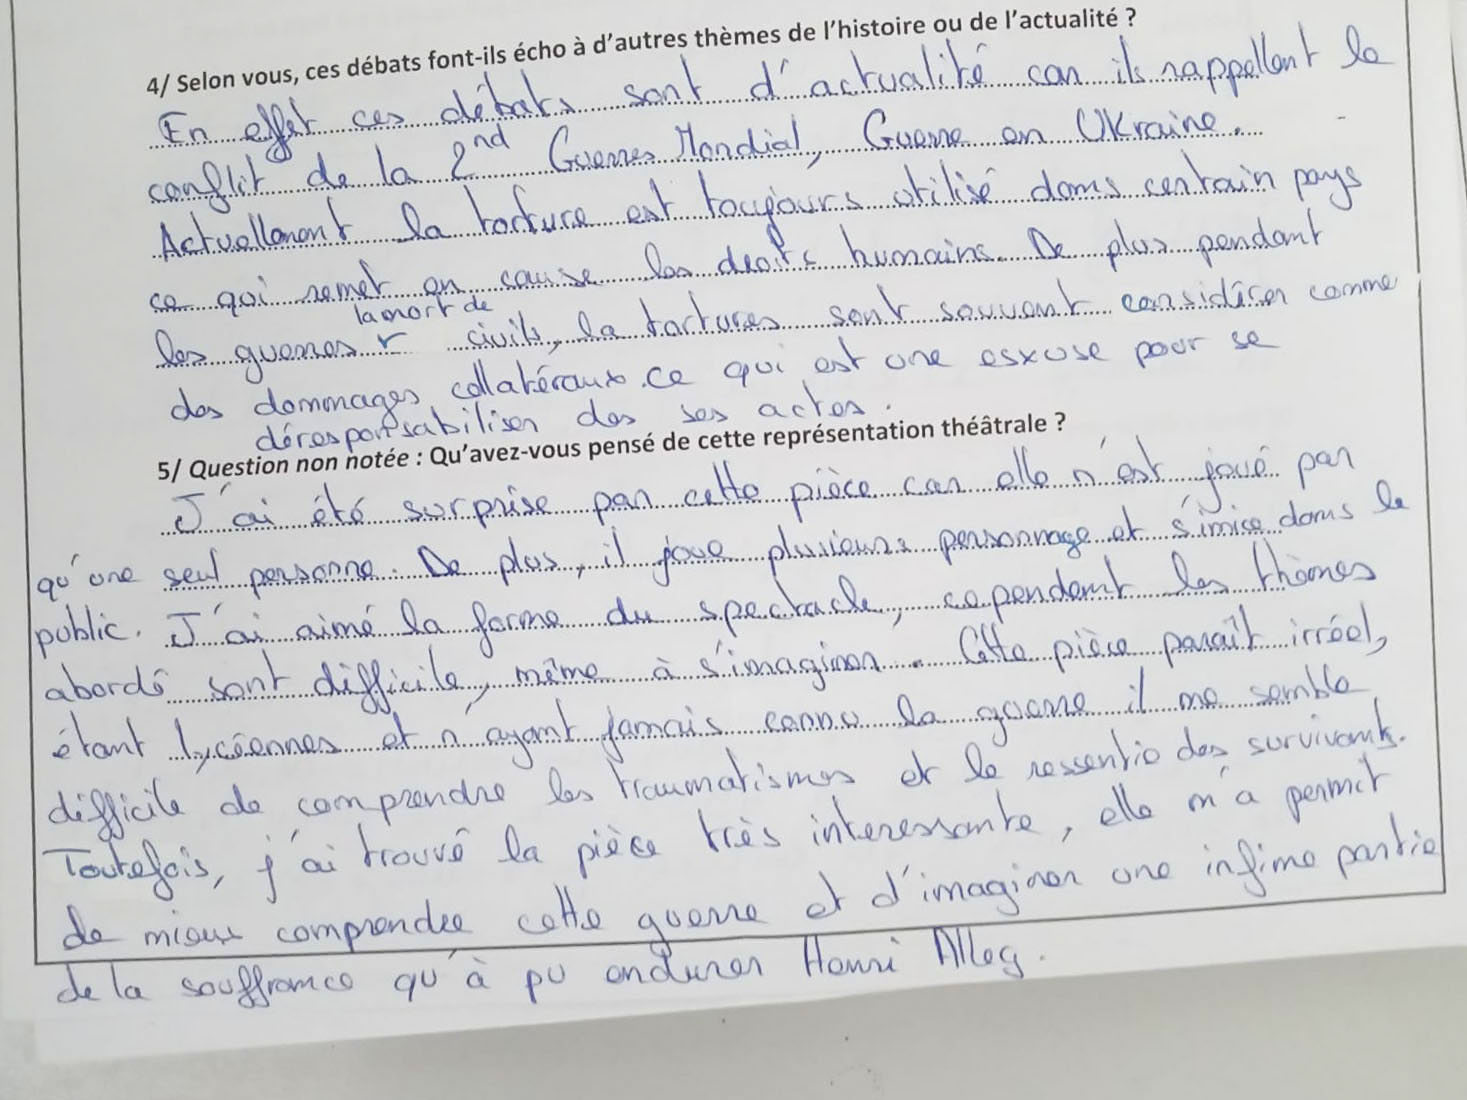 4/ Selon vous, ces débats font-ils écho à d'autres thèmes de l'histoire ou de l'actualité ?
En effet ces débats sont d'actualité car ils rappellent le
conflit de la 2nd Guerres Mondial, Guerre en Ukraine.
Actuellement la torture est toujours utilisé dans certain pays
ce qui remet en cause les droits humains. De plus pendant
la mort de
les guerres r civils, la tortures sont souvent considérer comme
des dommages collatéraux. ce qui est une esxuse pour se
déresponsabiliser des ses actes.
5/ Question non notée : Qu'avez-vous pensé de cette représentation théâtrale ?
J'ai été surprise par cette pièce car elle n'est joué par
qu'une seul personne. De plus, il joue plusieurs personnage et s'imisce dans le
public. J'ai aimé la forme du spectacle, cependant les thèmes
abordé sont difficile, même à s'imaginer. Cette pièce paraît irréel,
étant lycéennes et n'ayant jamais connu la guerre il me semble
difficile de comprendre les traumatismes et le ressentie des survivants.
Toutefois, j'ai trouvé la pièce très interessante, elle m'a permit
de mieux comprendre cette guerre et d'imaginer une infime partie
de la souffrance qu'à pu endurer Henri Alleg.